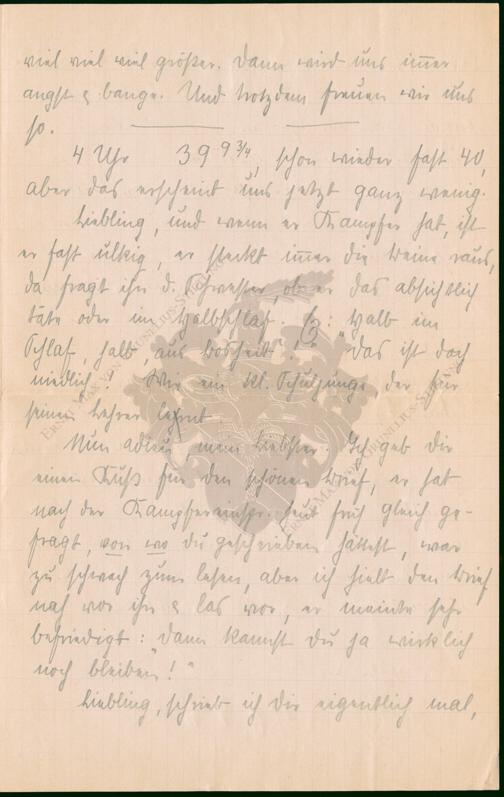 viel viel viel größer. Dann wird uns immer
angst & bange. Und trotzdem freuen wir uns
so.
4 Uhr 39 9 3/4, schon wieder fast 40,
aber das erscheint uns jetzt ganz wenig.
Liebling, und wenn er Kampfer hat, ist
er fast ulkig, er steckt immer die Beine raus,
da fragt ihn d. Schwester, ob er das absichtlich
täte oder im Halbschlaf. : "Halb im
Schlaf, halb aus Bosheit"! "Das ist doch
niedlich. Wie ein kl. Schuljunge der für
seinen Lehrer lernt
Nun adieu, mein Liebster. Ich geb dir
einen Kuß für den schönen Brief, er hat
nach der Kampfereinspr. heut früh gleich ge-
fragt, von wo du geschrieben hättest, war
zu schwach zum lesen, aber ich hielt den Brief
nah vor ihn & las vor, er meinte sehr
befriedigt: "dann kannst du ja wirklich
noch bleiben"!"
Liebling, schrieb ich dir eigentlich mal,
ERNST MAX VON GRUNELIUS-STIFTUNG
ERNST MAX VON GRUNELIUS-STIFTUNG